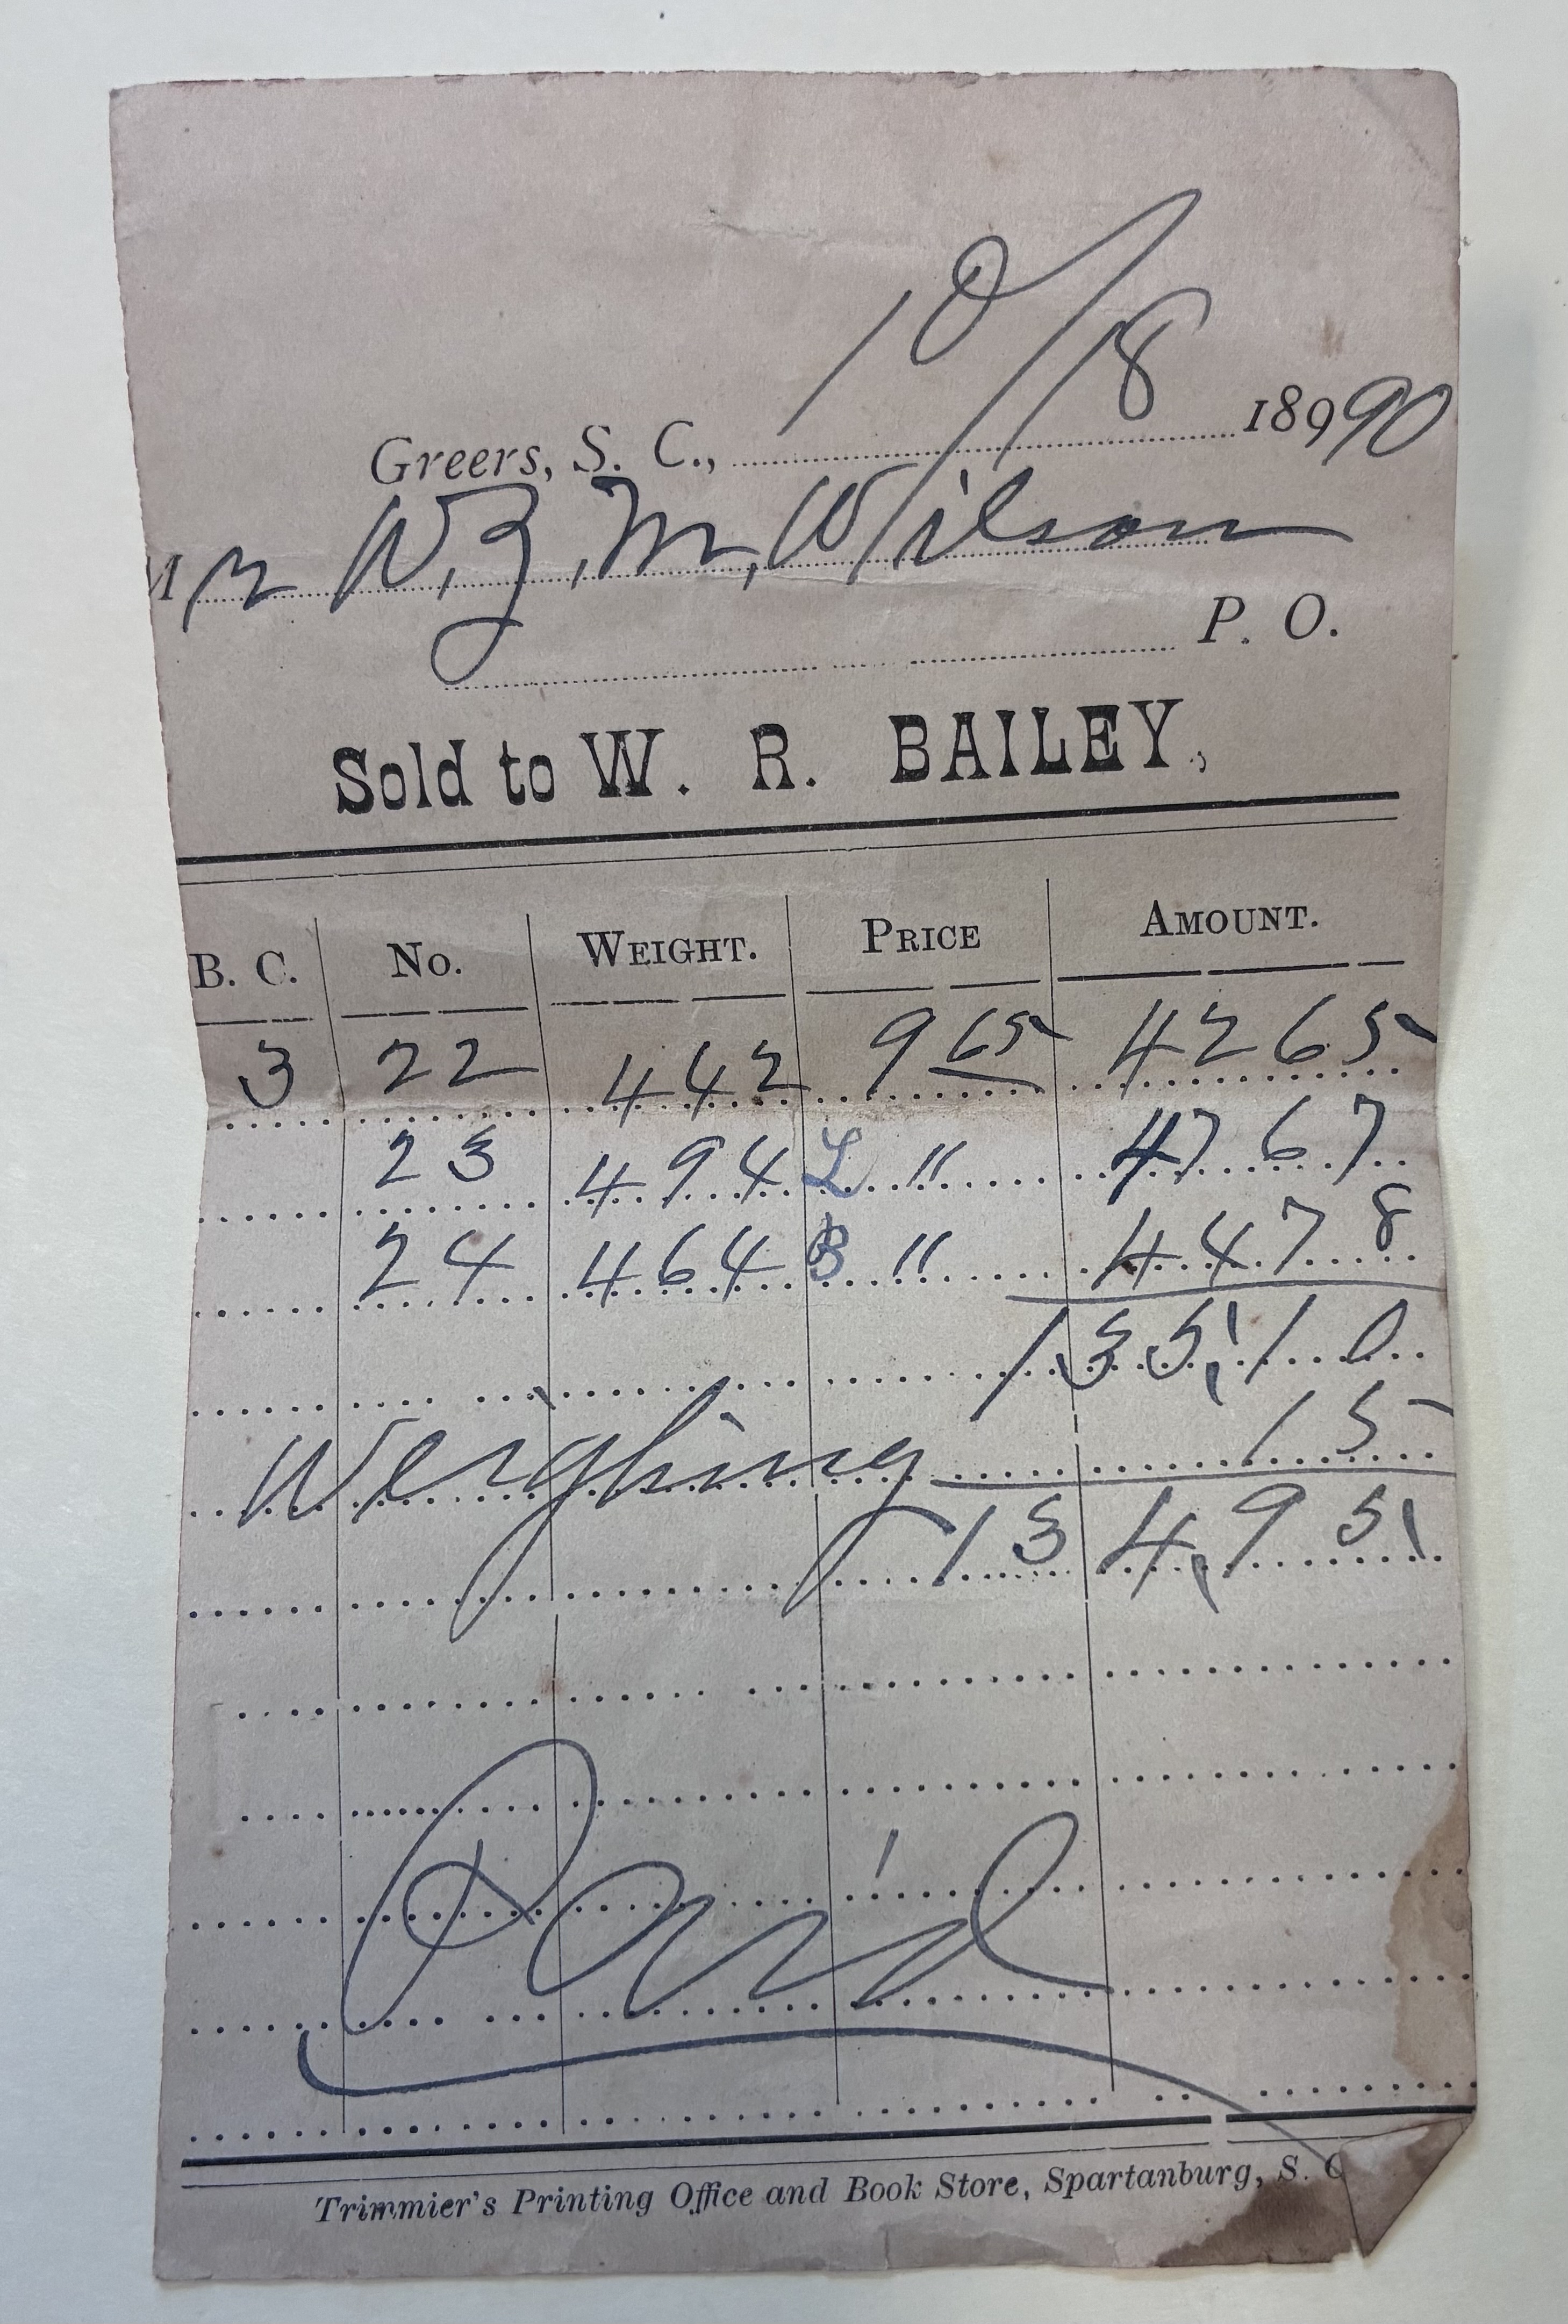 Greers, S. C., 10/18 18990
Mr W. Z. M. Wilson
P. O.
Sold to W. R. BAILEY,
B. C. No. WEIGHT. PRICE AMOUNT.
3 22 442 9 65 42 65
23 494 L " 47 67
24 464 B " 44 78
135,10
Weighing 15
134,95
Paid
Trimmier's Printing Office and Book Store, Spartanburg, S. C